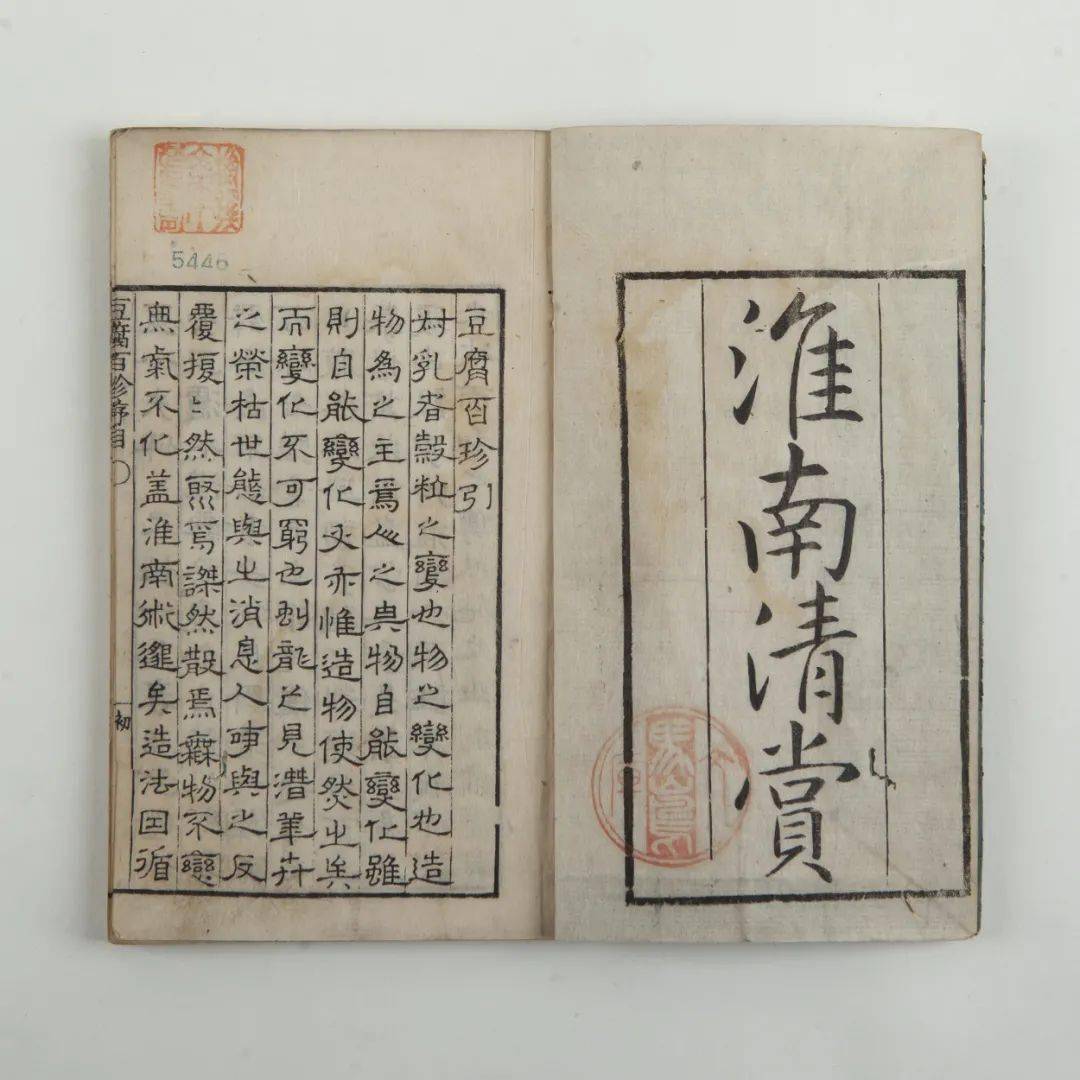 淮南清賞
5446
豆腐百珍引
乳者穀粒之變也物之變化也造
物為之主焉之物自能變化雖
則自能變化夫亦惟造物使然之矣
而變化不可窮也龍之見潛草卉
之榮枯世態與之消息人事與之反
覆擾〻然焉謋然散焉無物不變
無氣不化蓋淮南術矣造法因循
豆腐百珍序目
初